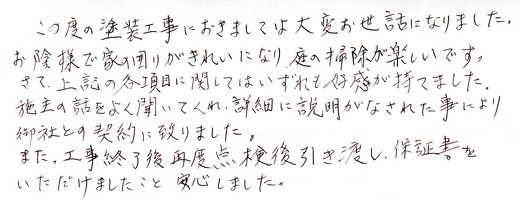 この度の塗装工事におきましては大変お世話になりました。
お陰様で家の回りがきれいになり庭の掃除が楽しいです。
さて、上記の各項目に関してはいずれも好感が持てました。
施主の話をよく聞いてくれ、詳細に説明がなされた事により
御社との契約に致りました。
また、工事終了後再度点検後引き渡し、保証書を
いただけましたこと安心しました。